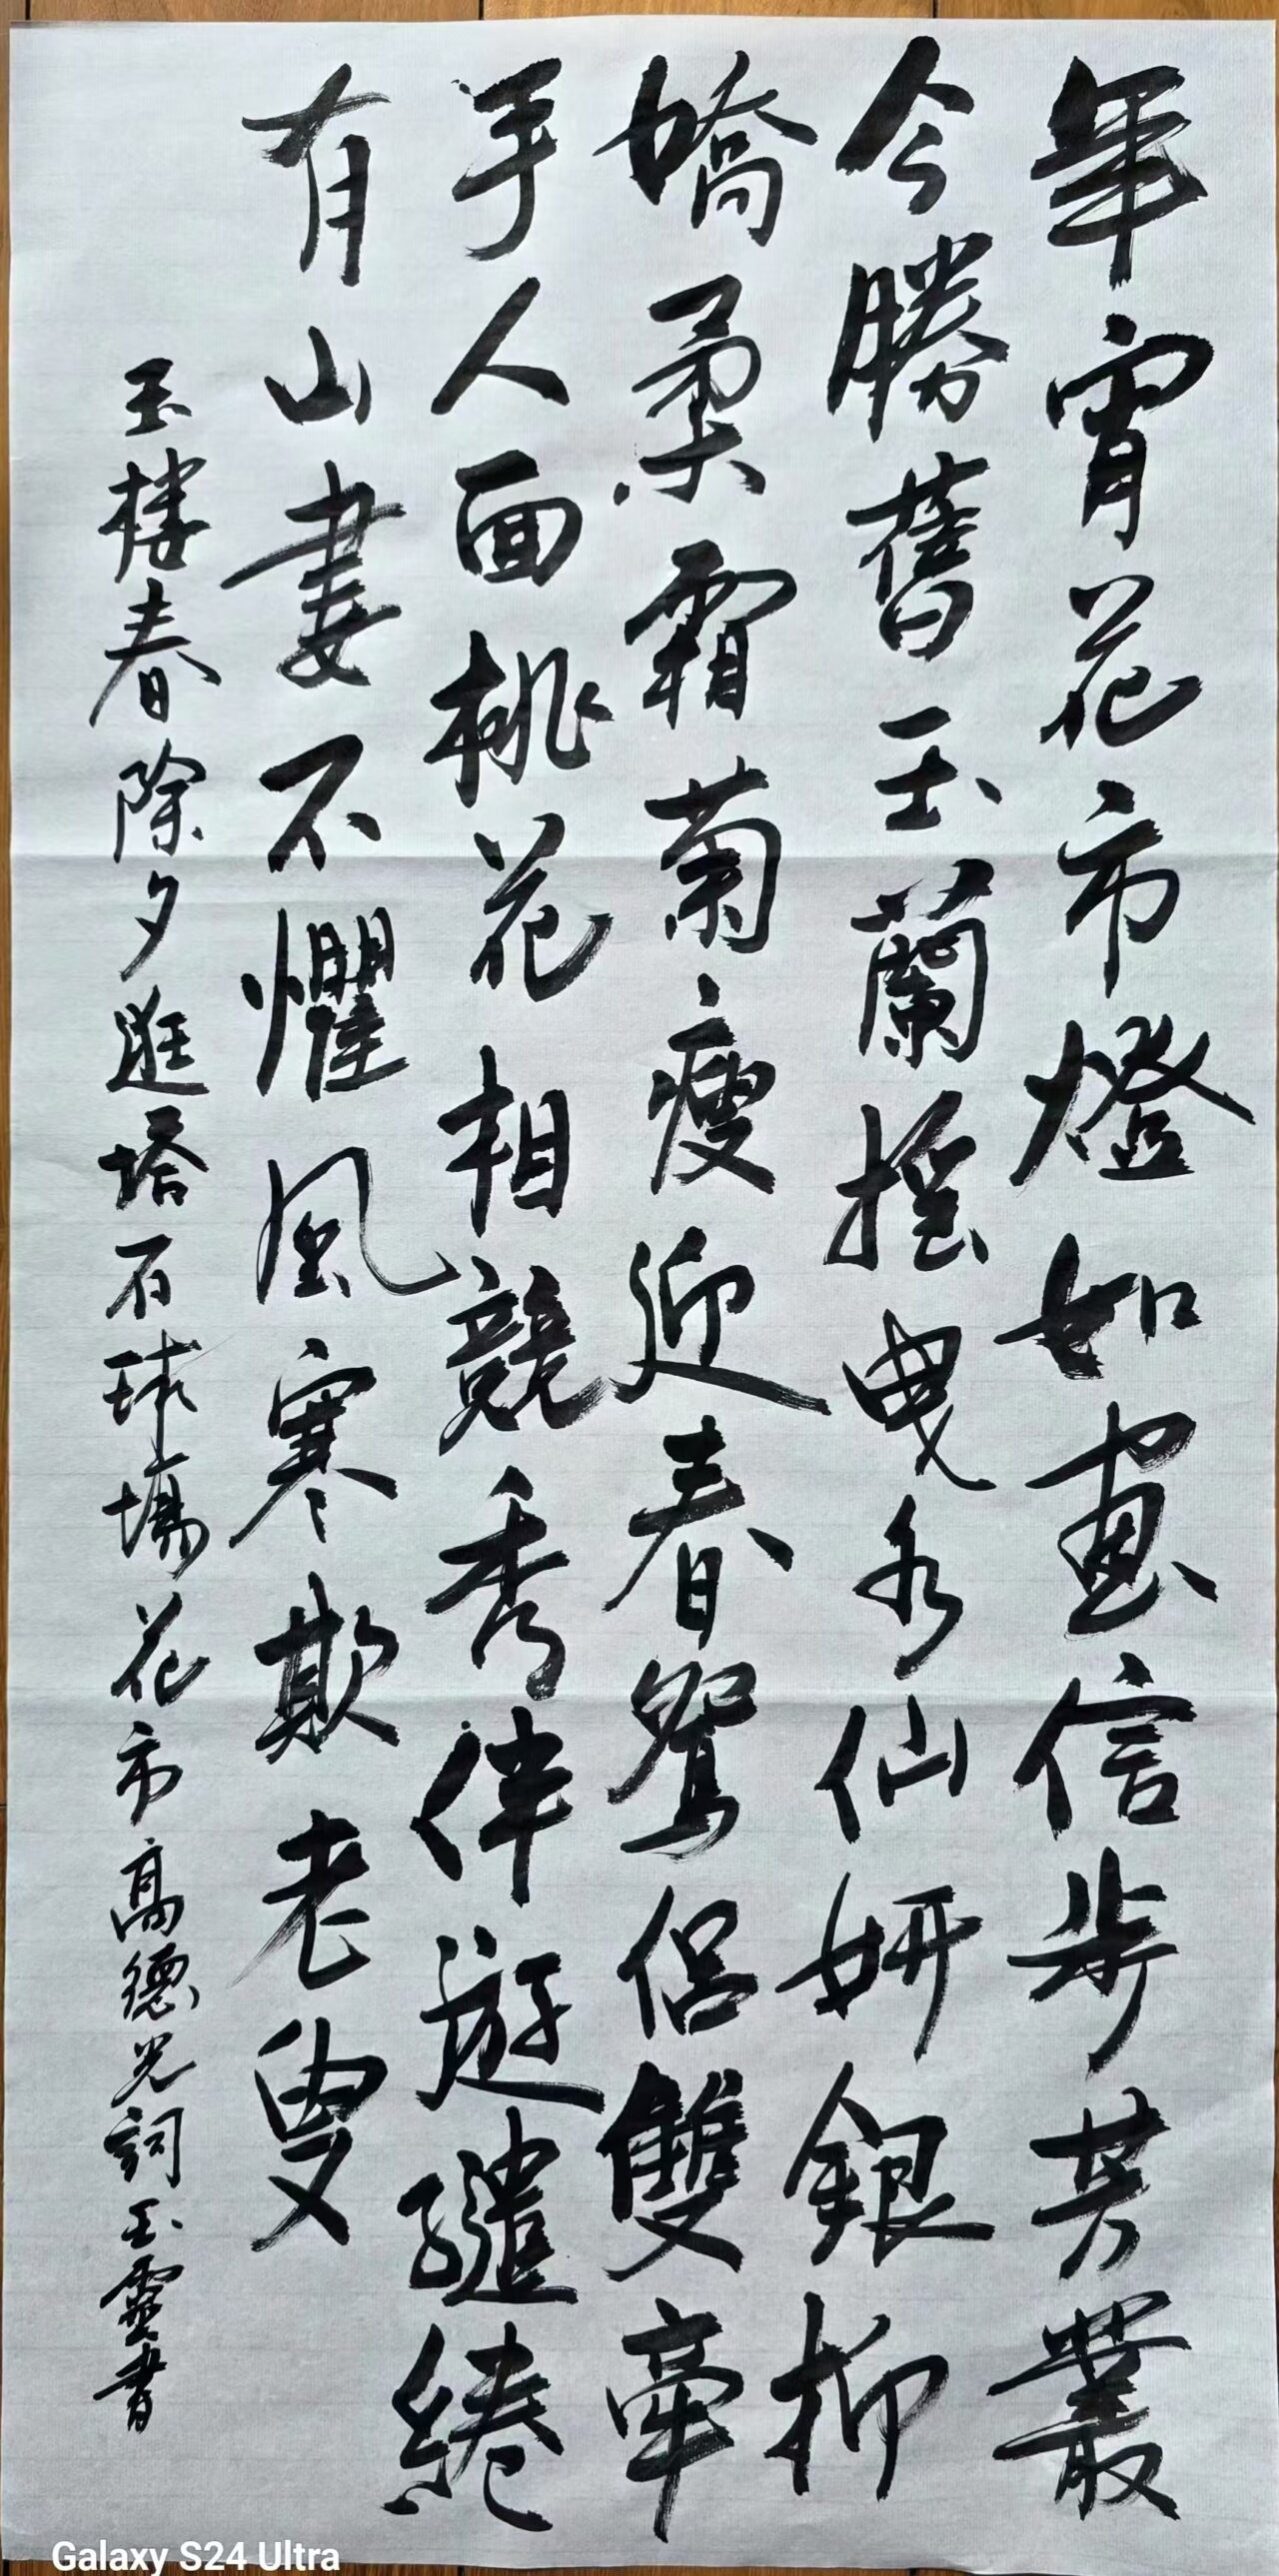 年宵花市燈如畫信步芳叢
今勝舊玉蘭搖曳水仙妍銀柳
嬌柔霜菊瘦迎春鴛侣雙牽
手人面桃花相競秀伴遊繾綣
有山妻不懼風寒欺老叟
玉樓春除夕逛塔石球場花市高德光詞玉雲書
Galaxy S24 Ultra